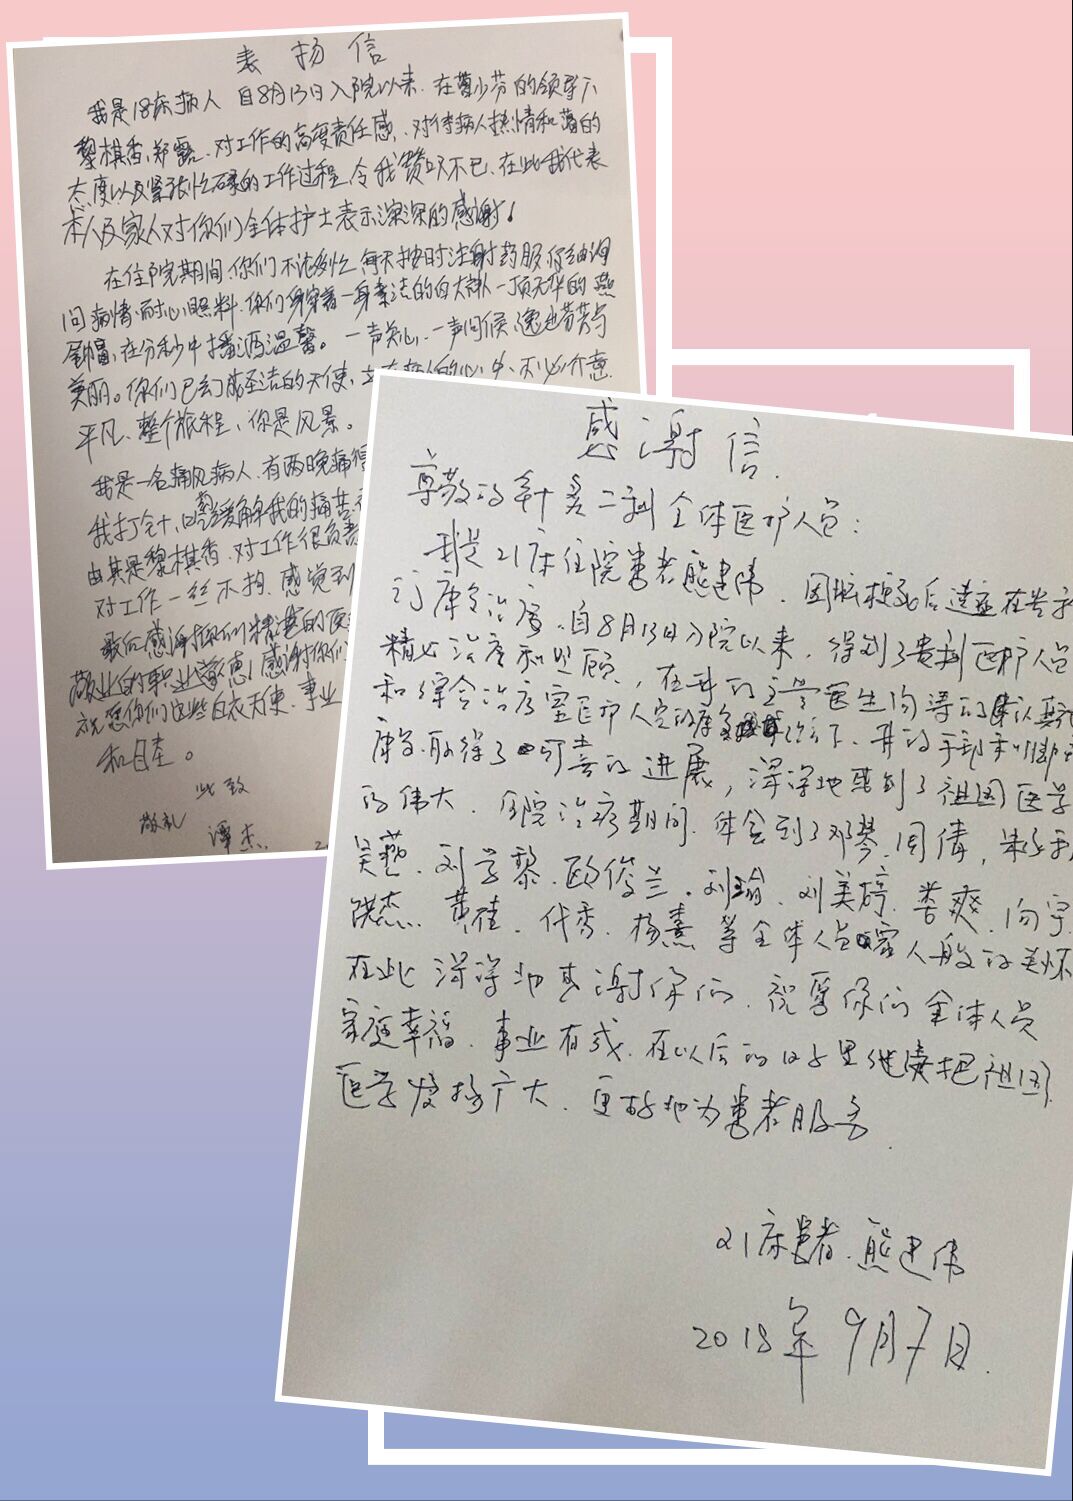 表扬信
我是18床病人 自8月13日入院以来、在曾少芬的领导下
黎棋香、郑露、对工作的高度责任感、对待病人热情和蔼的
态度以及紧张忙碌的工作过程、令我赞叹不已、在此我代表
本人及家人对你们全体护士表示深深的感谢!
在住院期间、你们不论多忙 每天按时注射药服仔细询
问病情、耐心照料、你们身穿着一身素洁的白大挂 一顶无华的燕
尾帽、在分秒中播洒温馨。一声关心、一声问候、透出芳芳与
美丽。你们已幻成圣洁的天使、立在病人的心中、不必介意
平凡、整个旅程、你是风景。
我是一名痛风病人、有两晚痛得
我打针、缓解我的痛苦
由其是黎棋香、对工作很负责
对工作一丝不拘、感觉到
最后感谢你们精湛的医
敬业的职业道德、感谢你们
祝愿你们这些白衣天使、事业
和目走。
此致
敬礼
谭杰
感谢信
尊敬的针灸二科全体医护人员:
我是21床住院患者熊建伟、因脑梗死后遗症在贵科
康复治疗、自8月13日入院以来、得到了贵科医护人员
精心治疗和照顾、在我的主管医生向
和综合治疗室医护人员的康复 下、我的手部和脚部
康复取得了可喜的进展、深深地感到了祖国医学
的伟大。住院治疗期间、体会到了邓琴、周倩、
吴艳、刘学黎、欧俊兰、刘瑜、刘美婷、娄爽、向宇
洪杰、黄佳、代秀、杨熹等全体人员家人般的关怀
在此深深地感谢你们、祝愿你们全体人员
家庭幸福、事业有成、在以后的日子里继续把祖国
医学发扬广大、更好地为患者服务
21床患者、熊建伟
2018年9月7日.